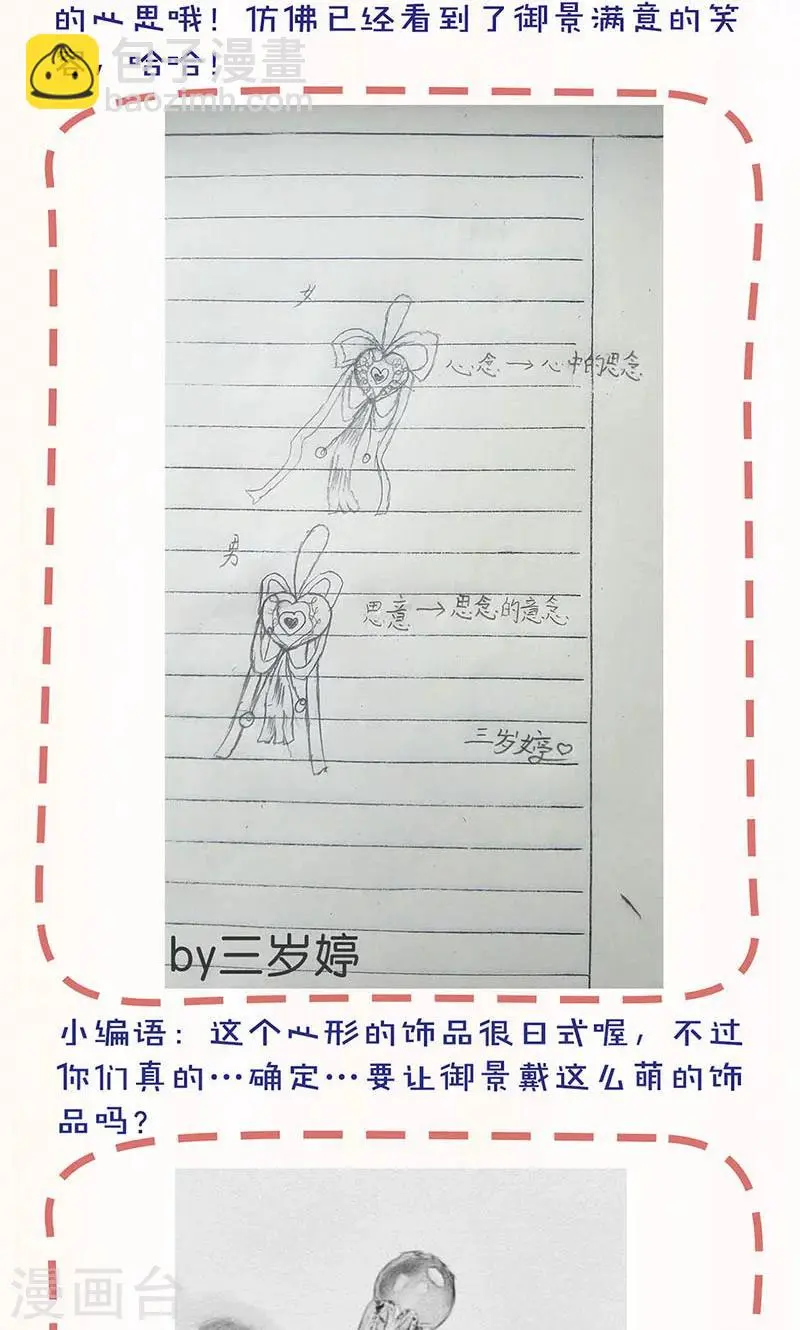 的心思哦！仿佛已经看到了御景满意的笑
容，哈哈！
包子漫畫
baozimh.com
女
心念→心中的思念
男
思意→思念的意念
三岁婷♡
by三岁婷
小编语：这个心形的饰品很日式喔，不过
你们真的…确定…要让御景戴这么萌的饰
品吗？
漫画台